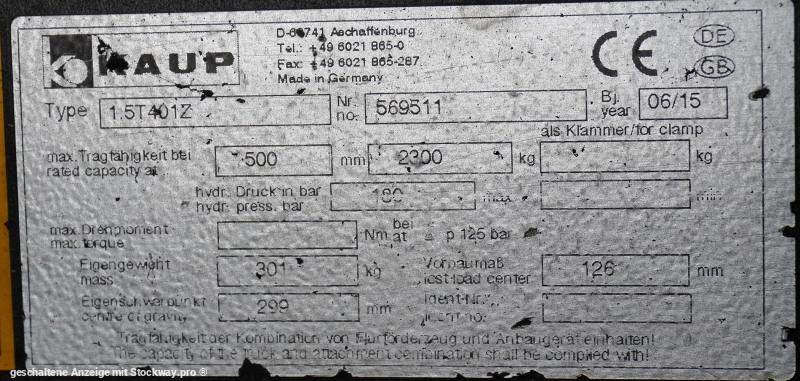 KAUP
D-63741 Aschaffenburg
Tel.: +49 6021 865-0
Fax: +49 6021 865-287
Made in Germany
CE
DE
GB
Type 1.5T401Z
Nr. no. 569511
Bj. year 06/15
als Klammer/for clamp
max. Tragfähigkeit bei
rated capacity at 500 mm 2300 kg kg
hydr. Druck in bar
hydr. press. bar max min
max. Drehmoment
max. torque Nm bei at △ p 125 bar
Eigengewicht
mass 301 kg
Vorbaumaß
lost load center 126 mm
Eigenschwerpunkt
centre of gravity 299 mm
Ident-Nr.
Tragfähigkeit der Kombination von Flurförderzeug und Anbaugerät einhalten!
The capacity of the truck and attachment combination shall be complied with!
geschaltene Anzeige mit Stockway.pro ®